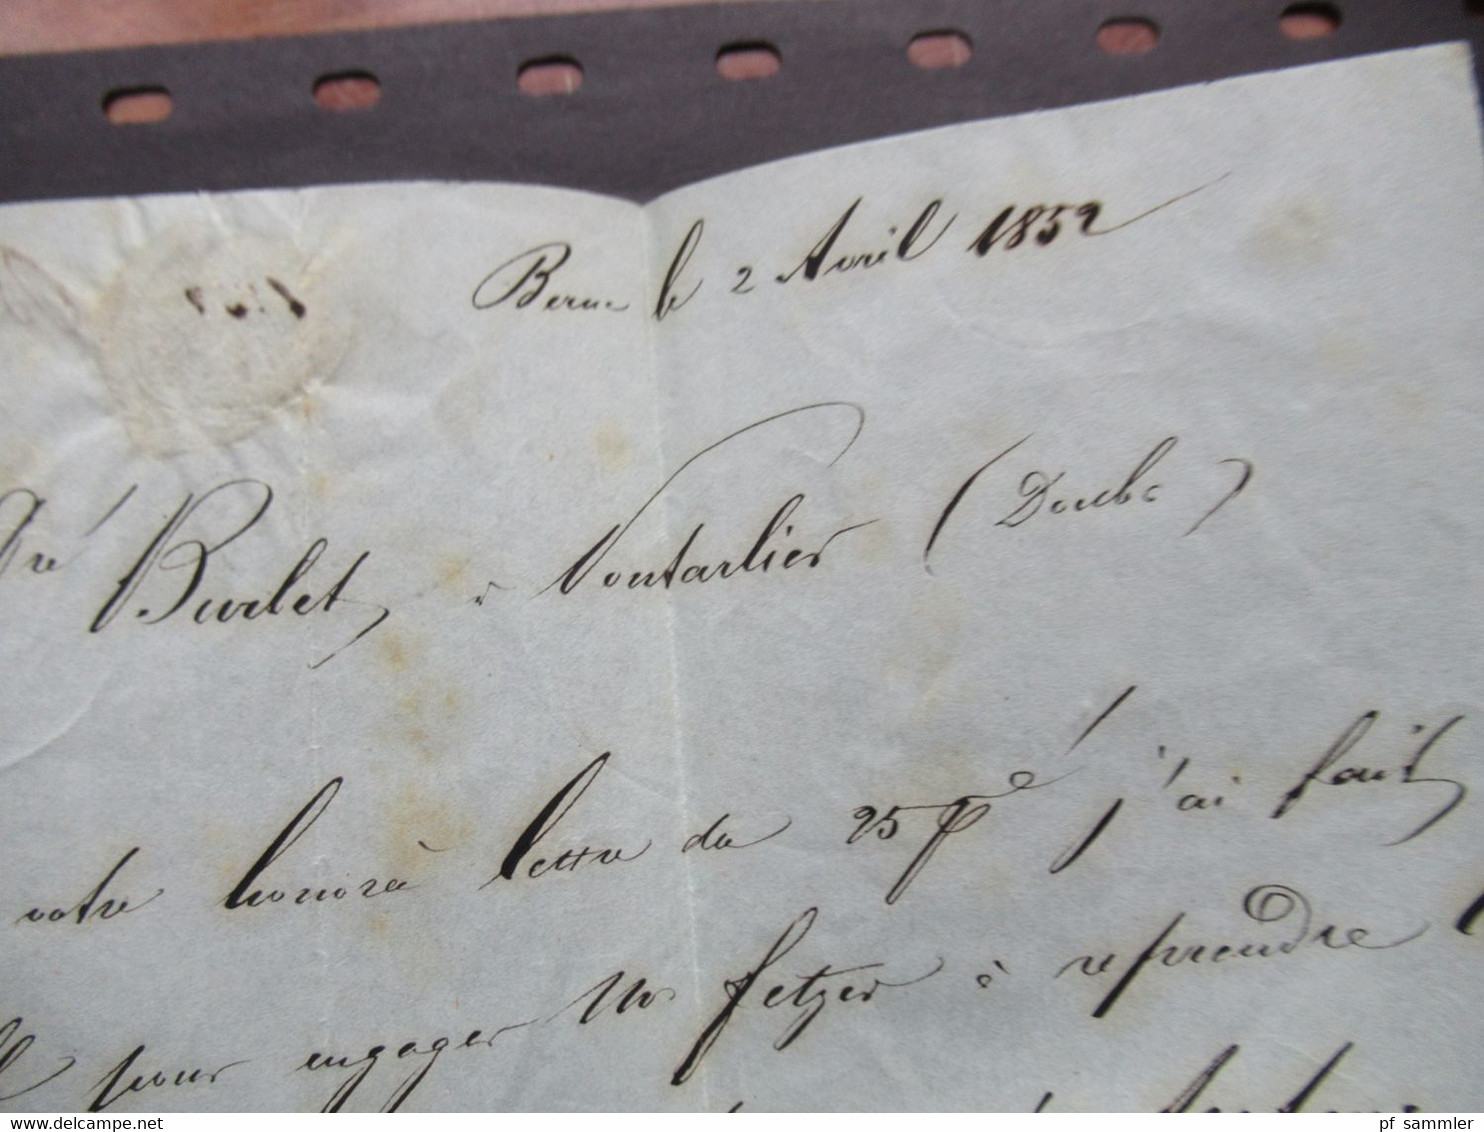 Berne le 2 Avril 1852
Burlet, à Pontarlier (Doubs)
votre honorée lettre du 25 pé j'ai fait
pour engager Mr Fetzer à reprendre
pf_sammler
www.delcampe.net